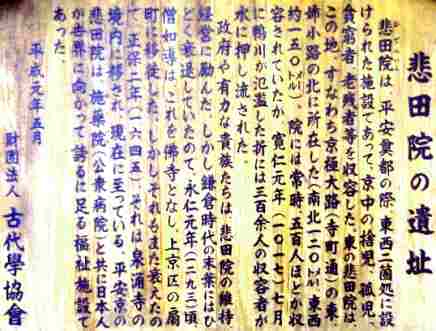 悲田院の遺址
悲田院は、平安奠都の際、東西二箇処に設
けられた施設であって、京中の捨児、孤児
貧窮者、老残者等を収容した。東の悲田院は
この地、すなわち京極大路（寺町通）の東
姉小路の北に所在した（南北一二〇メートル、東西
約一五〇メートル）。院には常時、五百人ほどが収
容されていたが、寛仁元年（一〇一七）七月
に鴨川が氾濫した折には三百余人の収容者が
水に押し流された。
政府や有力な貴族たちは、悲田院の維持
経営に励んだ。しかし鎌倉時代の末葉にはひ
どく衰退していたので、永仁元年（一二九三）頃
僧如導は、これを佛寺となし、上京区の扇
町に移徙した。しかしそれもまた衰えたの
で、正保二年（一六四五）、それは泉涌寺の
境内に移され、現在に至っている。平安京の
悲田院は、施薬院（公衆病院）と共に日本人
が世界に向かって誇るに足る福祉施設で
あった。
平成元年五月
財団法人 古代學協會